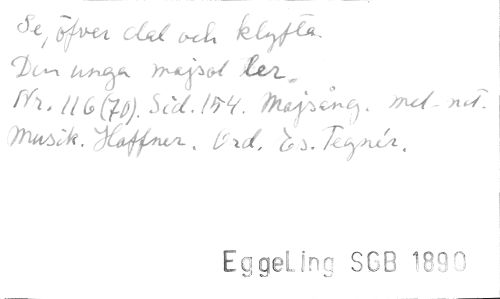 Se, öfver dal och klyfta.
Den unga majsol ler.
Nr. 116 (70). Sid. 154. Majsång. mel-not.
Musik. Haffner. Ord. Es. Tegnér.
EggeLing SGB 1890